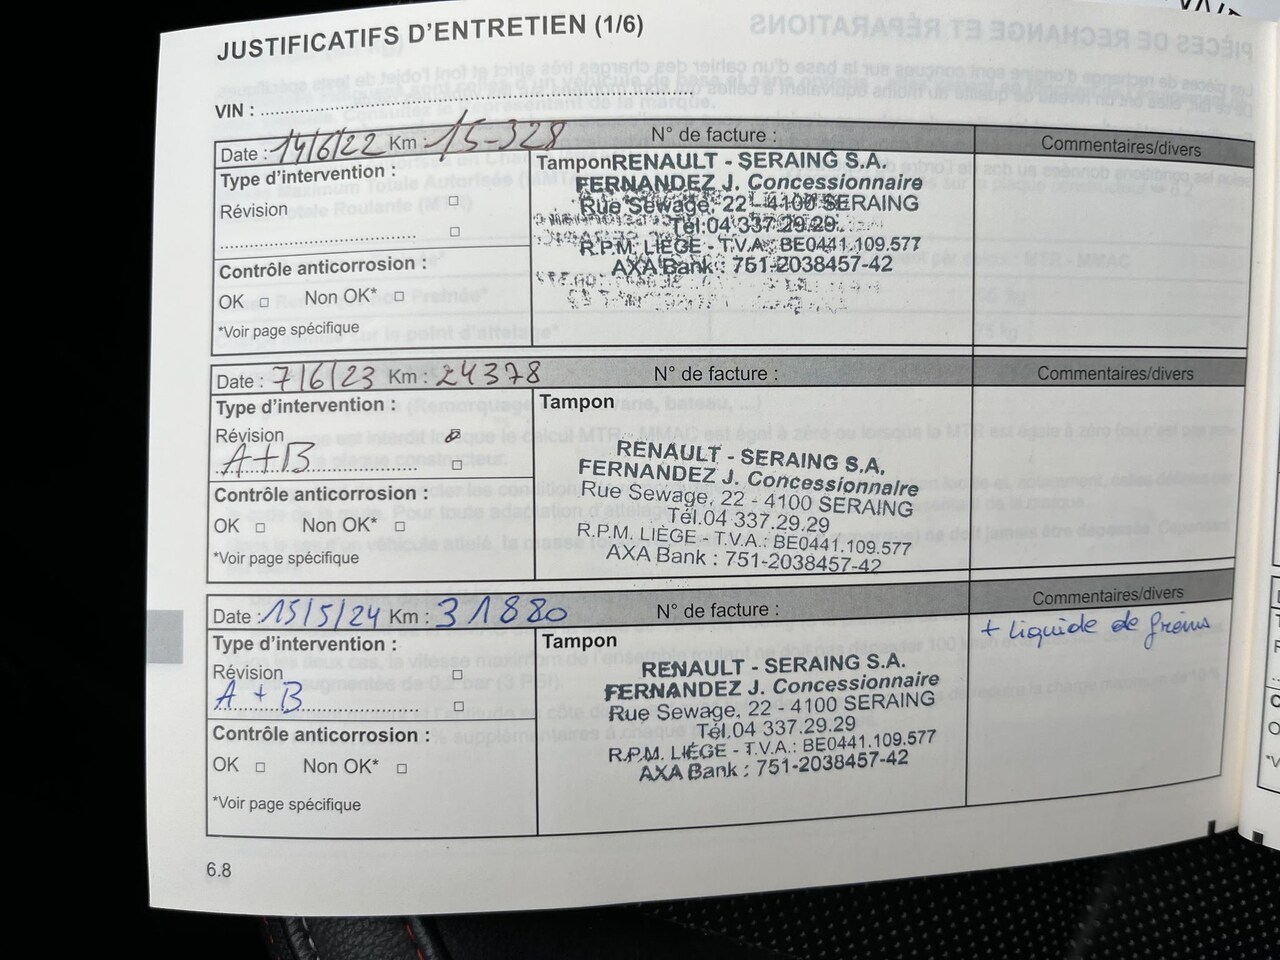 JUSTIFICATIFS D'ENTRETIEN (1/6)
VIN :
Date : 14/6/22 Km : 15-328 N° de facture : Commentaires/divers
Type d'intervention :
Révision
Contrôle anticorrosion :
OK Non OK*
*Voir page spécifique
Tampon
RENAULT - SERAING S.A.
FERNANDEZ J. Concessionnaire
Rue Sewage, 22 - 4100 SERAING
Tél.04 337.29.29
R.P.M. LIÈGE - T.V.A.: BE0441.109.577
AXA Bank : 751-2038457-42
Date : 7/6/23 Km : 24378 N° de facture : Commentaires/divers
Type d'intervention :
Révision
A+B
Contrôle anticorrosion :
OK Non OK*
*Voir page spécifique
Tampon
RENAULT - SERAING S.A.
FERNANDEZ J. Concessionnaire
Rue Sewage, 22 - 4100 SERAING
Tél.04 337.29.29
R.P.M. LIÈGE - T.V.A.: BE0441.109.577
AXA Bank : 751-2038457-42
Date : 15/5/24 Km : 31880 N° de facture : Commentaires/divers
Type d'intervention :
Révision
A + B
Contrôle anticorrosion :
OK Non OK*
*Voir page spécifique
Tampon
RENAULT - SERAING S.A.
FERNANDEZ J. Concessionnaire
Rue Sewage, 22 - 4100 SERAING
Tél.04 337.29.29
R.P.M. LIÈGE - T.V.A.: BE0441.109.577
AXA Bank : 751-2038457-42
+ liquide de freins
6.8